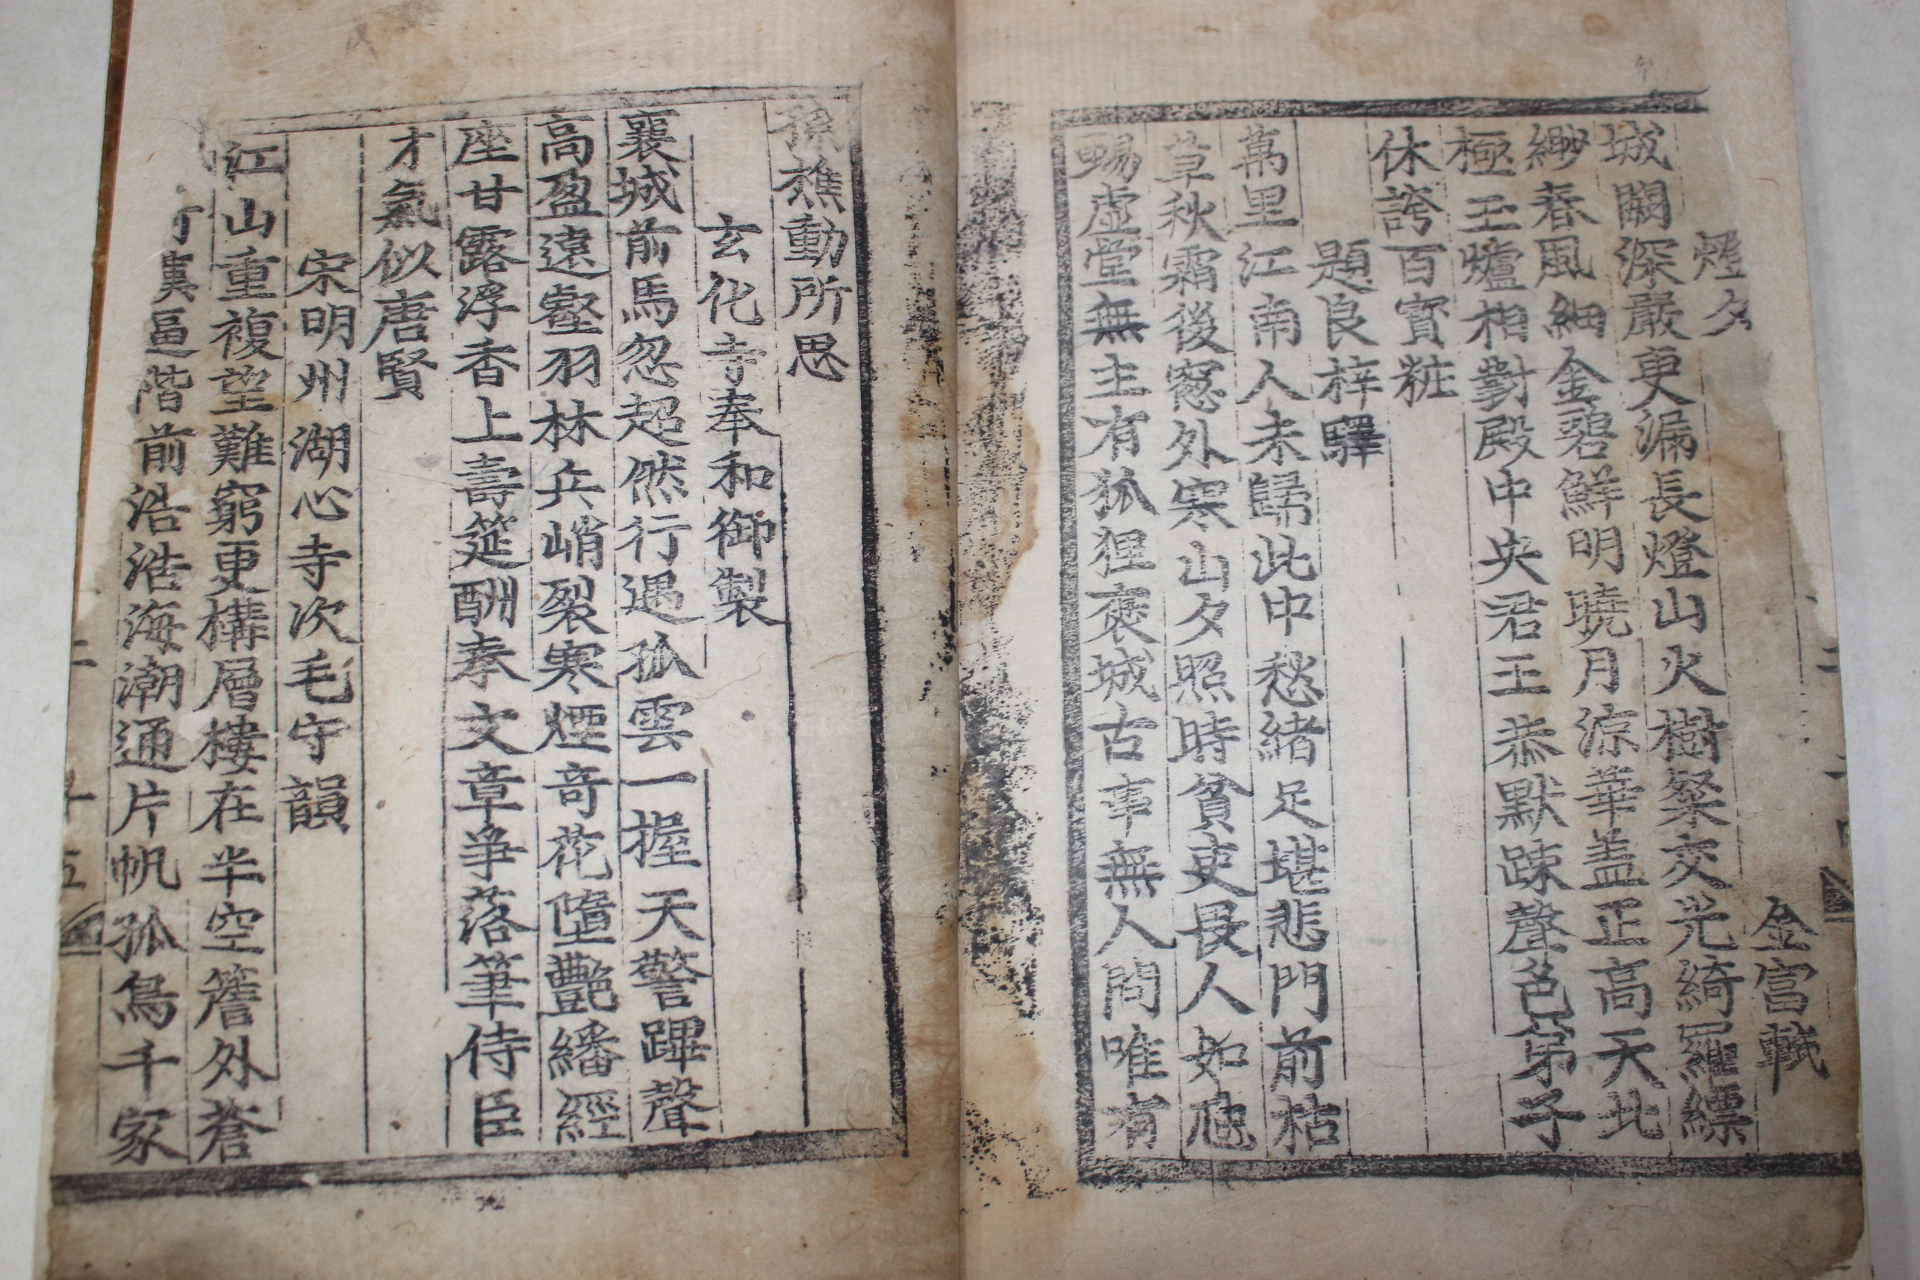 燈夕 金富轍
城闕深嚴更漏長燈山火樹粲交光綺羅縹
緲春風細金碧鮮明曉月凉華盖正高天北
極玉爐相對殿中央君王恭默踈聲色弟子
休誇百寳粧
題良梓驛
萬里江南人未歸此中愁緖足堪悲門前枯
草秋霜後窓外寒山夕照時貧吏畏人如
賜虛堂無主有狐狸褒城古事無人問唯有
孫樵動所思
玄化寺奉和御製
襄城前馬忽超然行遇孤雲一握天警蹕聲
高盈遠壑羽林兵峭裂寒煙竒花墮艶繙經
座甘露浮香上壽筵酬奉文章爭落筆侍臣
才氣似唐賢
宋明州湖心寺次毛守韻
江山重複望難窮更構層樓在半空簷外蒼
漢逼階前浩浩海潮通片帆孤鳥千家